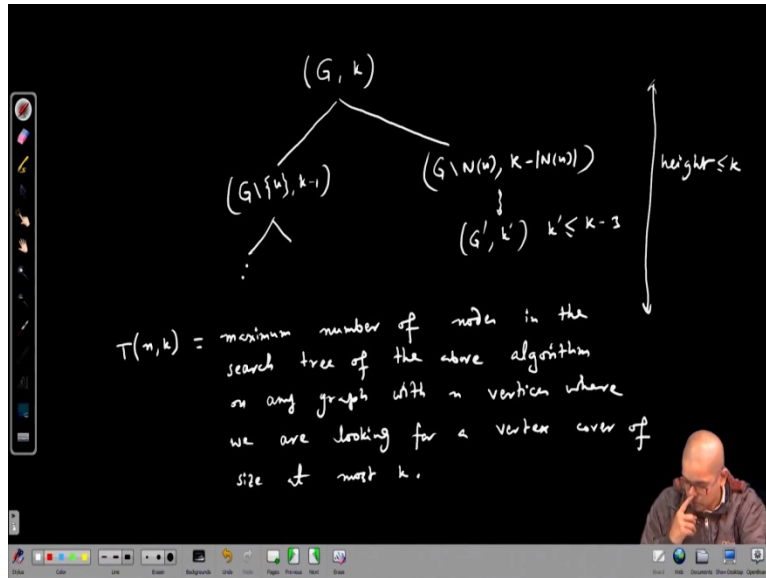 (G, k)
(G\{u}, k-1)
(G\N(u), k-|N(u)|)
(G', k') k' ≤ k-3
height ≤ k
T(n,k) = maximum number of nodes in the
search tree of the above algorithm
on any graph with n vertices where
we are looking for a vertex cover of
size at most k.
Stylus Color Line Eraser Backgrounds Undo Redo Pages Previous Next Erase Board Web Documents Show Desktop OpenBoard